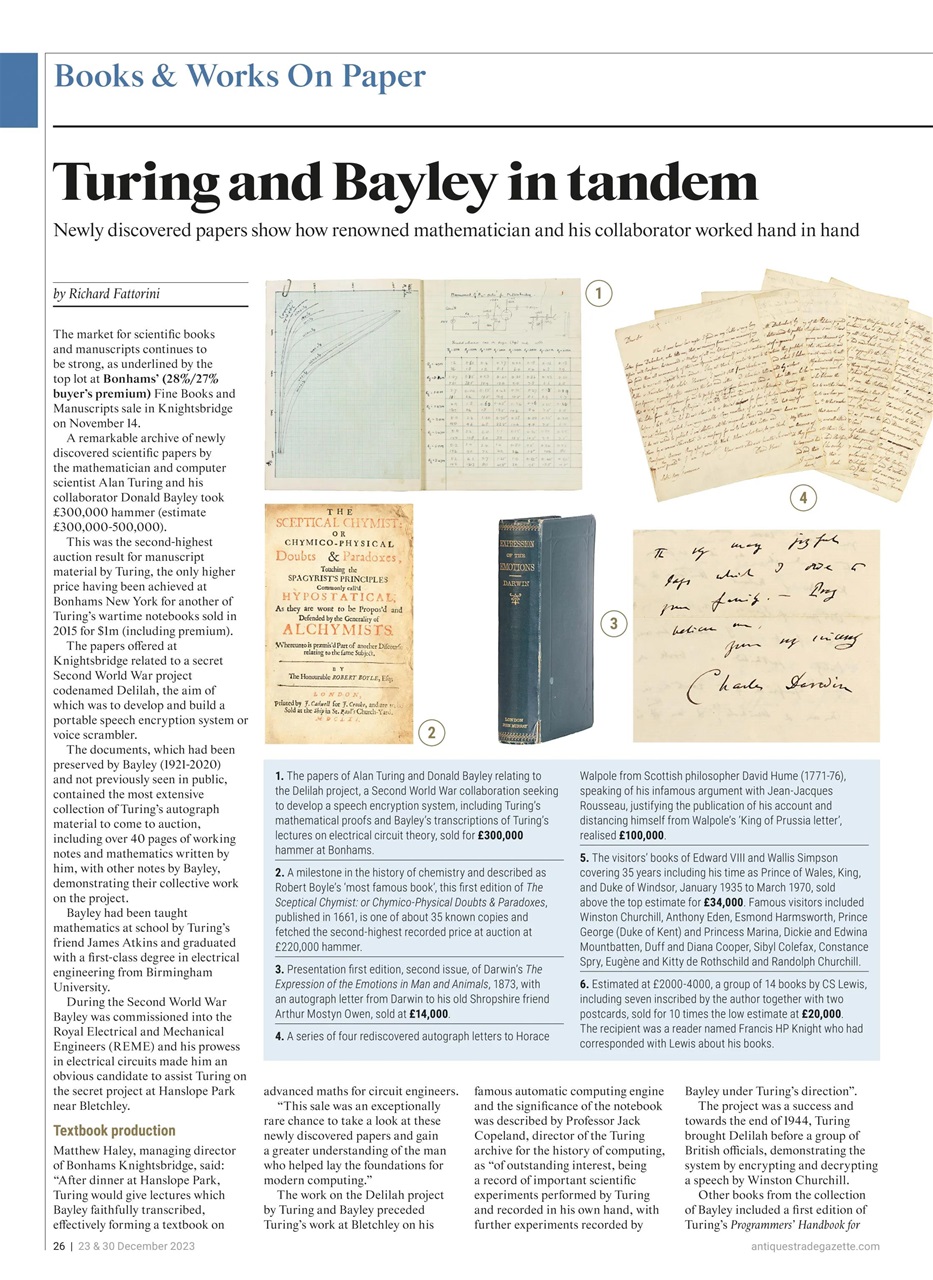 Books & Works On Paper
Turing and Bayley in tandem
Newly discovered papers show how renowned mathematician and his collaborator worked hand in hand
by Richard Fattorini
The market for scientific books
and manuscripts continues to
be strong, as underlined by the
top lot at Bonhams' (28%/27%
buyer's premium) Fine Books and
Manuscripts sale in Knightsbridge
on November 14.
A remarkable archive of newly
discovered scientific papers by
the mathematician and computer
scientist Alan Turing and his
collaborator Donald Bayley took
£300,000 hammer (estimate
£300,000-500,000).
This was the second-highest
auction result for manuscript
material by Turing, the only higher
price having been achieved at
Bonhams New York for another of
Turing's wartime notebooks sold in
2015 for $1m (including premium).
The papers offered at
Knightsbridge related to a secret
Second World War project
codenamed Delilah, the aim of
which was to develop and build a
portable speech encryption system or
voice scrambler.
The documents, which had been
preserved by Bayley (1921-2020)
and not previously seen in public,
contained the most extensive
collection of Turing's autograph
material to come to auction,
including over 40 pages of working
notes and mathematics written by
him, with other notes by Bayley,
demonstrating their collective work
on the project.
Bayley had been taught
mathematics at school by Turing's
friend James Atkins and graduated
with a first-class degree in electrical
engineering from Birmingham
University.
During the Second World War
Bayley was commissioned into the
Royal Electrical and Mechanical
Engineers (REME) and his prowess
in electrical circuits made him an
obvious candidate to assist Turing on
the secret project at Hanslope Park
near Bletchley.
Textbook production
Matthew Haley, managing director
of Bonhams Knightsbridge, said:
"After dinner at Hanslope Park,
Turing would give lectures which
Bayley faithfully transcribed,
effectively forming a textbook on
1
4
THE
SCEPTICAL CHYMIST:
OR
CHYMICO-PHYSICAL
Doubts & Paradoxes,
Touching the
SPAGYRIST'S PRINCIPLES
Commonly call'd
HYPOSTATICAL,
As they are wont to be Propos'd and
Defended by the Generality of
ALCHYMISTS.
Whereunto is præmis'd Part of another Discourse
relating to the same Subject.
BY
The Honourable ROBERT BOYLE, Esq;
LONDON,
Printed by J. Cadwell for J. Crooke, and are
Sold at the Ship in St. Paul's Church-Yard.
MDCLXI.
2
EXPRESSION
OF THE
EMOTIONS
DARWIN
LONDON
JOHN MURRAY
3
which I owe to
your family. — Pray
believe me,
Charles Darwin
1. The papers of Alan Turing and Donald Bayley relating to
the Delilah project, a Second World War collaboration seeking
to develop a speech encryption system, including Turing's
mathematical proofs and Bayley's transcriptions of Turing's
lectures on electrical circuit theory, sold for £300,000
hammer at Bonhams.
2. A milestone in the history of chemistry and described as
Robert Boyle's 'most famous book', this first edition of The
Sceptical Chymist: or Chymico-Physical Doubts & Paradoxes,
published in 1661, is one of about 35 known copies and
fetched the second-highest recorded price at auction at
£220,000 hammer.
3. Presentation first edition, second issue, of Darwin's The
Expression of the Emotions in Man and Animals, 1873, with
an autograph letter from Darwin to his old Shropshire friend
Arthur Mostyn Owen, sold at £14,000.
4. A series of four rediscovered autograph letters to Horace
Walpole from Scottish philosopher David Hume (1771-76),
speaking of his infamous argument with Jean-Jacques
Rousseau, justifying the publication of his account and
distancing himself from Walpole's 'King of Prussia letter',
realised £100,000.
5. The visitors' books of Edward VIII and Wallis Simpson
covering 35 years including his time as Prince of Wales, King,
and Duke of Windsor, January 1935 to March 1970, sold
above the top estimate for £34,000. Famous visitors included
Winston Churchill, Anthony Eden, Esmond Harmsworth, Prince
George (Duke of Kent) and Princess Marina, Dickie and Edwina
Mountbatten, Duff and Diana Cooper, Sibyl Colefax, Constance
Spry, Eugène and Kitty de Rothschild and Randolph Churchill.
6. Estimated at £2000-4000, a group of 14 books by CS Lewis,
including seven inscribed by the author together with two
postcards, sold for 10 times the low estimate at £20,000.
The recipient was a reader named Francis HP Knight who had
corresponded with Lewis about his books.
advanced maths for circuit engineers.
"This sale was an exceptionally
rare chance to take a look at these
newly discovered papers and gain
a greater understanding of the man
who helped lay the foundations for
modern computing."
The work on the Delilah project
by Turing and Bayley preceded
Turing's work at Bletchley on his
famous automatic computing engine
and the significance of the notebook
was described by Professor Jack
Copeland, director of the Turing
archive for the history of computing,
as "of outstanding interest, being
a record of important scientific
experiments performed by Turing
and recorded in his own hand, with
further experiments recorded by
Bayley under Turing's direction".
The project was a success and
towards the end of 1944, Turing
brought Delilah before a group of
British officials, demonstrating the
system by encrypting and decrypting
a speech by Winston Churchill.
Other books from the collection
of Bayley included a first edition of
Turing's Programmers' Handbook for
26 | 23 & 30 December 2023
antiquestradegazette.com